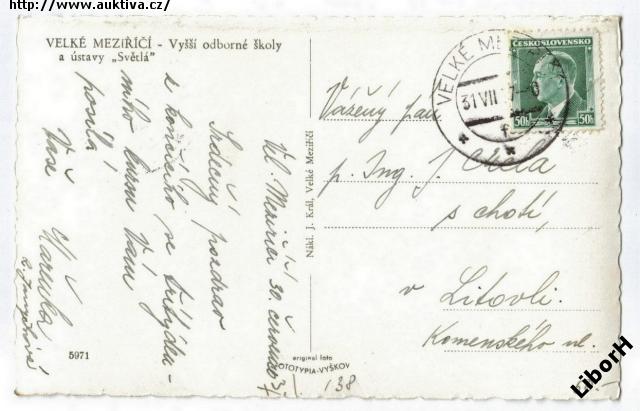 https://www.auktiva.cz/
VELKÉ MEZIŘÍČÍ - Vyšší odborné školy
a ústavy „Světlá"
Vel. Meziříčí 30. července 37
Srdečný pozdrav
z končícího se třítýden-
ního kursu Vám
posílá
Vaše
Mařenka
5971
Nákl. J. Král, Velké Meziříčí
original foto
FOTOTYPIA-VYŠKOV
138
VELKÉ ME
31 VII 37
ČESKOSLOVENSKO
50h 50h
Vážený pan
p. Ing. J.
s chotí,
v Litovli.
Komenského ul.
LiborH